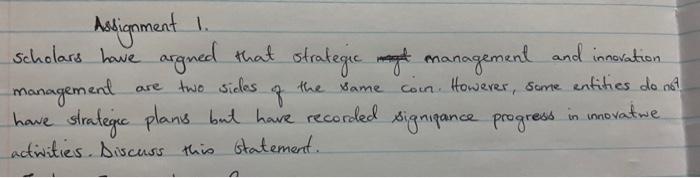 Assignment 1.
Scholars have argued that strategic mgt management and innovation
management are two sides of the same coin. However, some entities do not
have strategic plans but have recorded signigance progress in innovative
activities. Discuss this statement.